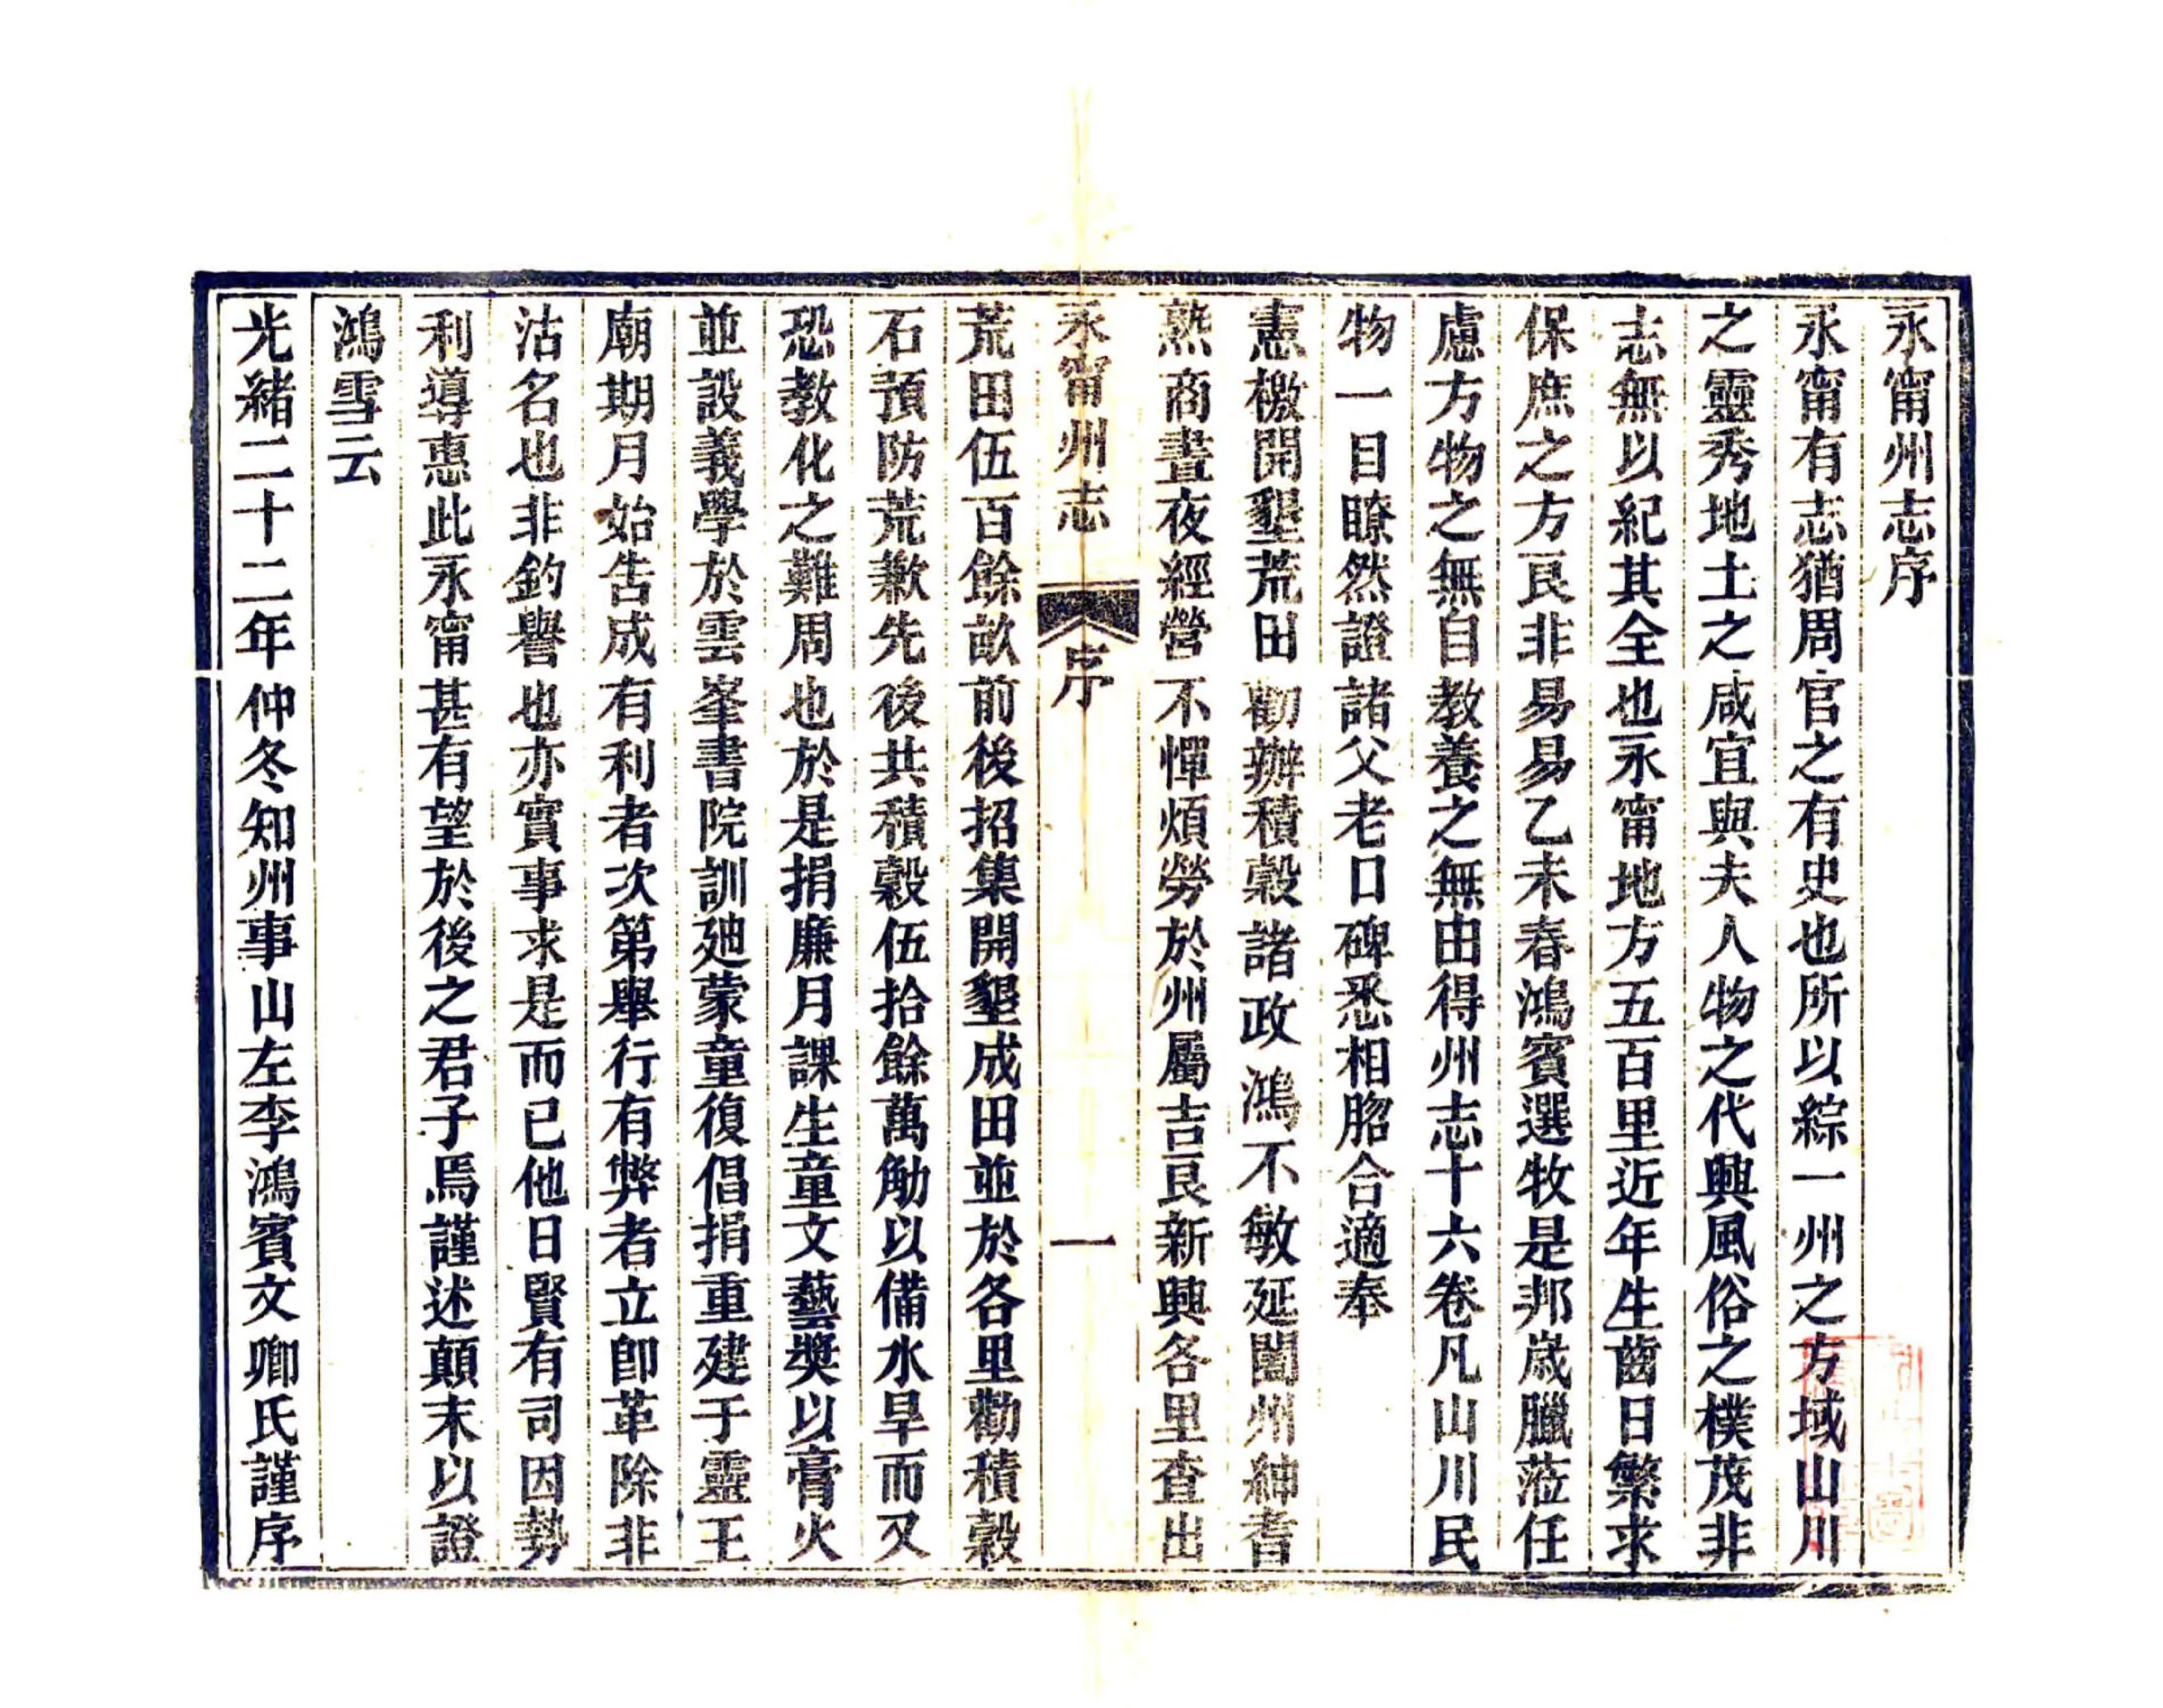 永甯州志序
永甯有志猶周官之有史也所以綜一州之方域山川
之靈秀地土之咸宜與夫人物之代興風俗之樸茂非
志無以紀其全也永甯地方五百里近年生齒日繁求
保庶之方良非易易乙未春鴻賓選牧是邦歲臘蒞任
慮方物之無自教養之無由得州志十六卷凡山川民
物一目瞭然證諸父老口碑悉相脗合適奉
憲檄開墾荒田勸辦積穀諸政鴻不敏延闔州紳耆
熟商晝夜經營不憚煩勞於州屬吉良新興各里查出
永甯州志 序 一
荒田伍百餘畝前後招集開墾成田並於各里勸積穀
石預防荒歉先後共積穀伍拾餘萬觔以備水旱而又
恐教化之難周也於是捐廉月課生童文藝獎以膏火
並設義學於雲峯書院訓廸蒙童復倡捐重建于靈王
廟期月始告成有利者次第舉行有弊者立卽革除非
沽名也非釣譽也亦實事求是而已他日賢有司因勢
利導惠此永甯甚有望於後之君子焉謹述顛末以證
鴻雪云
光緒二十二年仲冬知州事山左李鴻賓文卿氏謹序